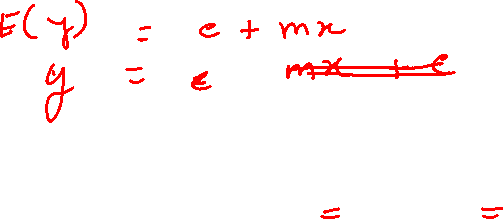 E(y) = c + mx
y = c mx + c
= =